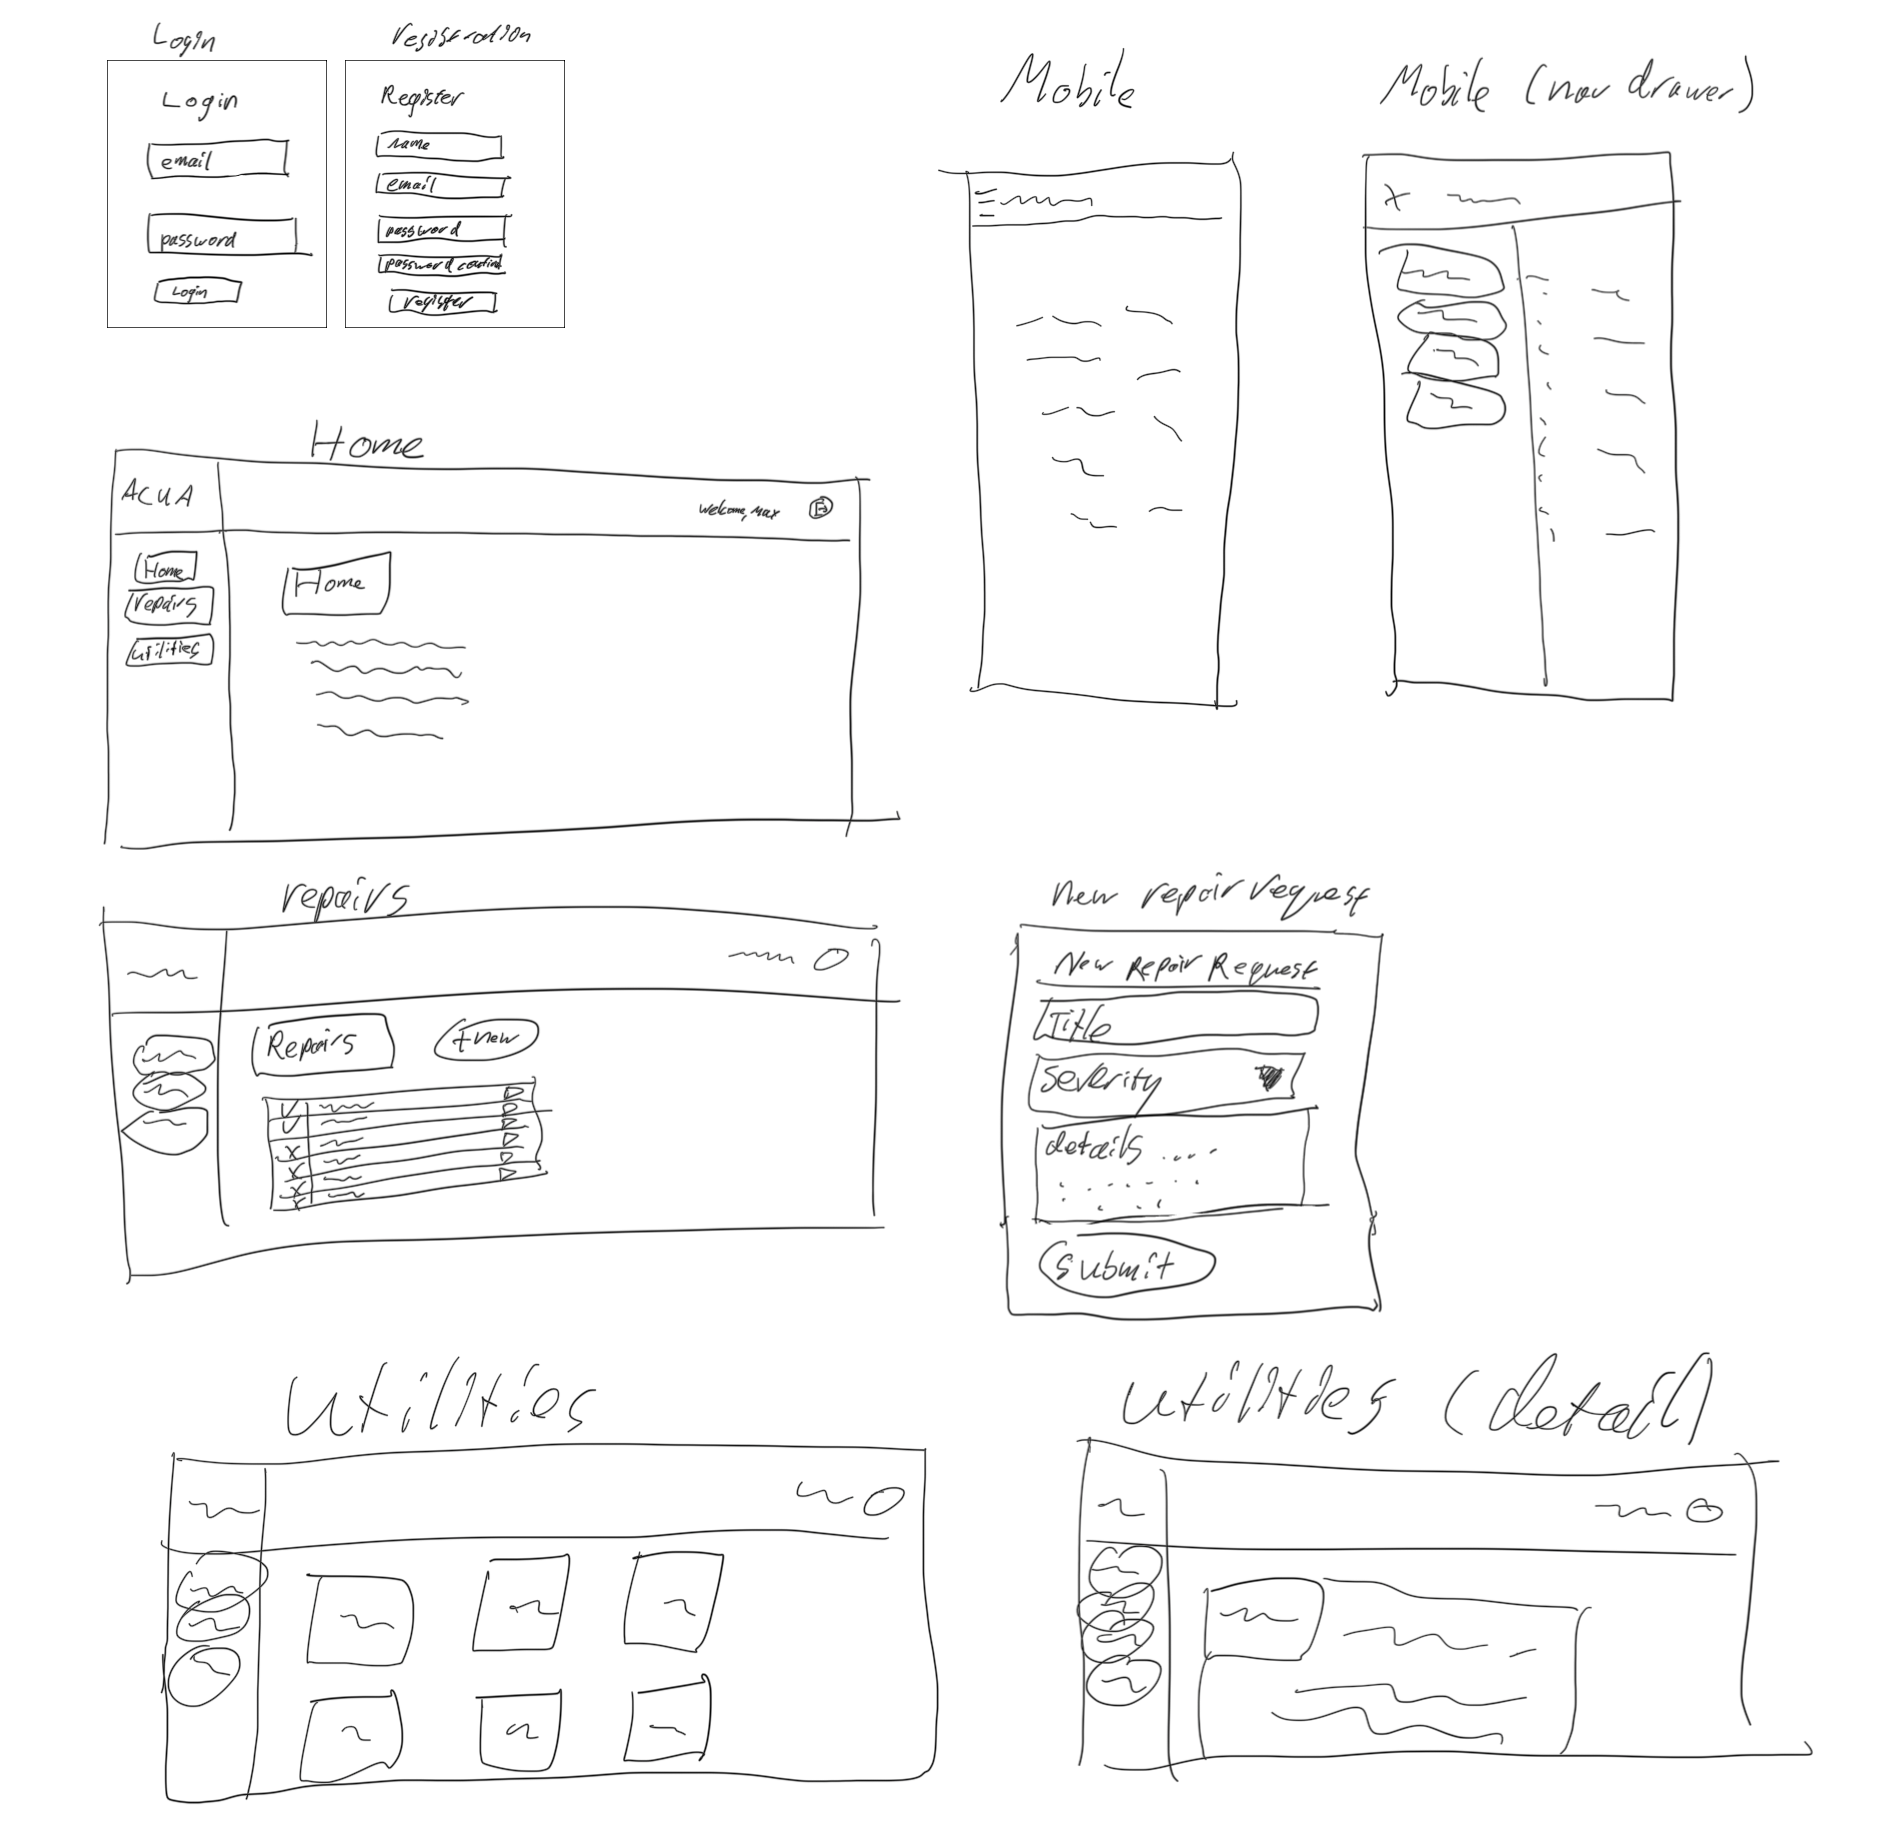 Login
registration
Login
email
password
Login
Register
name
email
password
password
register
Mobile
Mobile (nav drawer)
Home
ACUA
welcome, Max
Home
repairs
utilities
Home
repairs
Repairs
+new
New repair request
New Repair Request
Title
Severity
details ....
submit
utilities
utilities (detail)